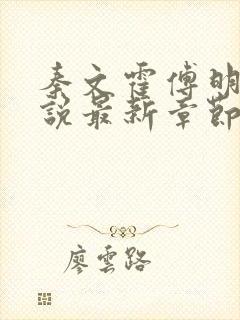 秦文霍傅明
說最新章節
廖雲路